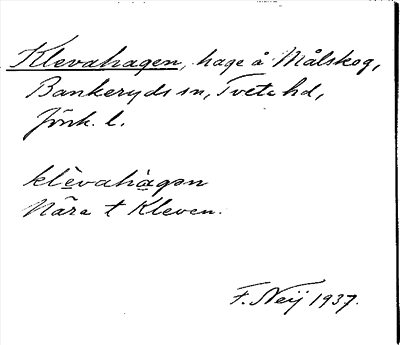 Klevahagen, hage å Målskog,
Bankeryds sn, Tveta hd,
Jönk. l.
klèvahàgən
Nära t Kleven.
F. Neij 1937.